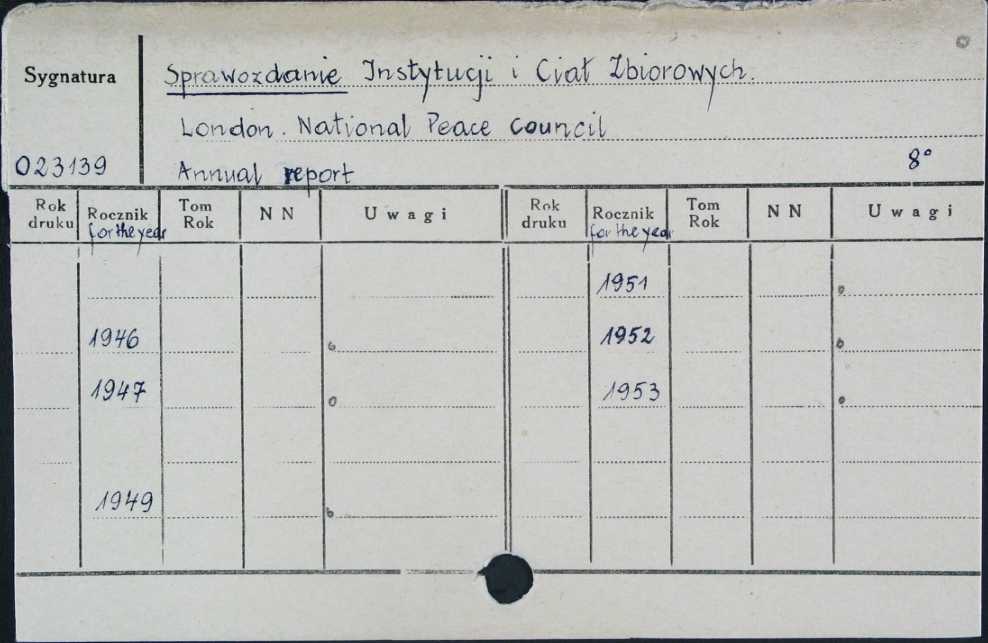 Sygnatura
Sprawozdanie Instytucji i Ciał Zbiorowych.
London. National Peace Council
023139
Annual report
8°
Rok druku Rocznik for the year Tom Rok NN Uwagi Rok druku Rocznik for the year Tom Rok NN Uwagi
1951
1946 1952
1947 1953
1949